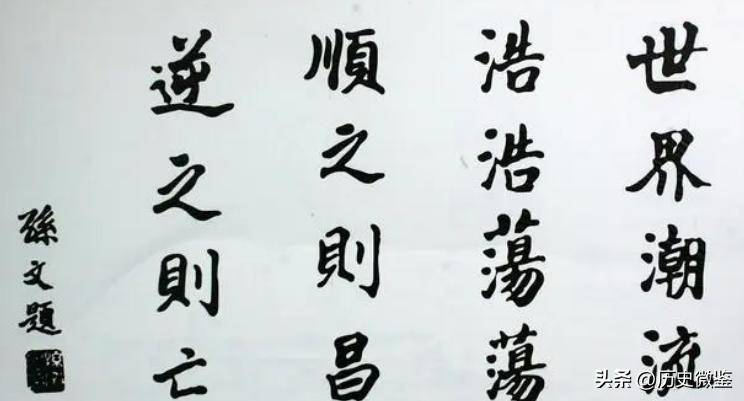 世界潮流
浩浩蕩蕩
順之則昌
逆之則亡
孫文題
头条 @历史微鉴